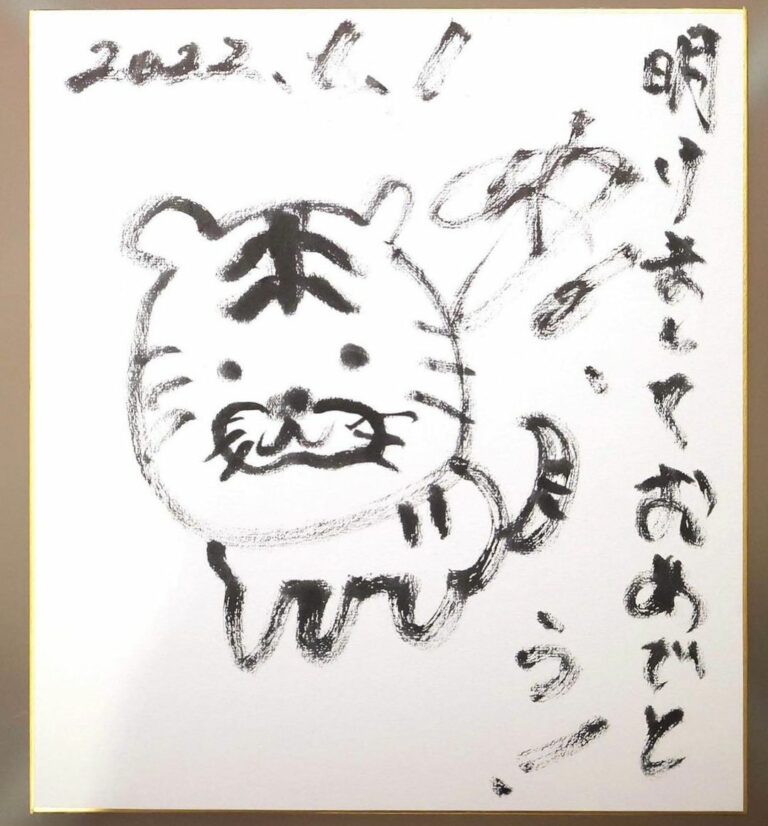 2022.1.1
明けましておめでと
う!